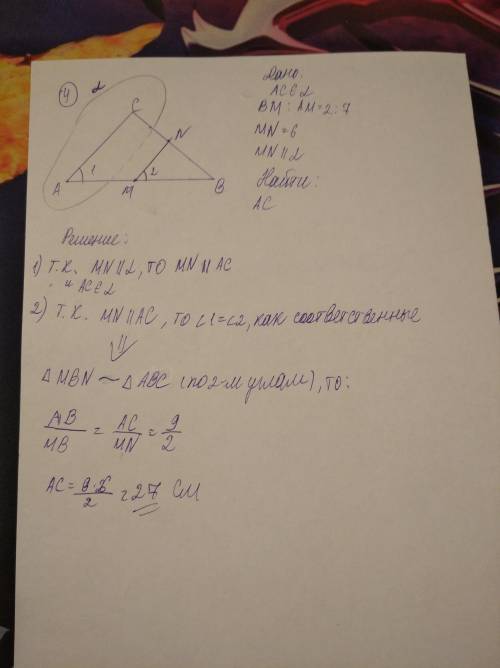 4
α
C
N
A 1 M 2 B
Дано:
AC∈α
BM : AM = 2 : 7
MN = 6
MN || α
Найти:
AC
Решение:
1) Т.к. MN || α, то MN || AC
и AC∈α
2) Т.к. MN || AC, то ∠1=∠2, как соответственные
⇓
△ MBN ~ △ ABC (по 2-м углам), то:
AB/MB = AC/MN = 9/2
AC = 9·6/2 = 27 см